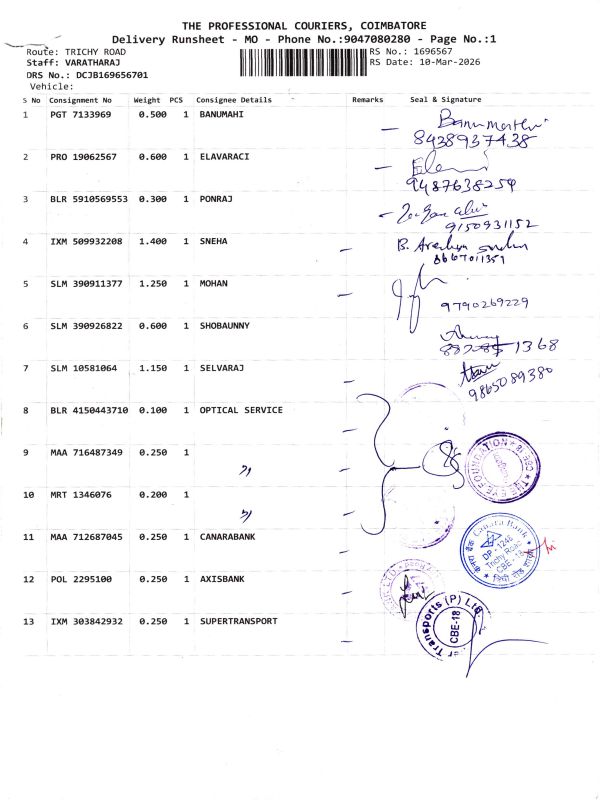 THE PROFESSIONAL COURIERS, COIMBATORE
Delivery Runsheet - MO - Phone No.:9047080280 - Page No.:1
Route: TRICHY ROAD
RS No.: 1696567
Staff: VARATHARAJ
RS Date: 10-Mar-2026
DRS No.: DCJB169656701
Vehicle:
S No Consignment No Weight PCS Consignee Details Remarks Seal & Signature
1 PGT 7133969 0.500 1 BANUMAHI
8438937438
2 PRO 19062567 0.600 1 ELAVARACI
9487638259
3 BLR 5910569553 0.300 1 PONRAJ
9150931152
4 IXM 509932208 1.400 1 SNEHA
8667011351
5 SLM 390911377 1.250 1 MOHAN
9790269229
6 SLM 390926822 0.600 1 SHOBAUNNY
1368
7 SLM 10581064 1.150 1 SELVARAJ
9865089380
8 BLR 4150443710 0.100 1 OPTICAL SERVICE
9 MAA 716487349 0.250 1
THE EYE FOUNDATION CBE-18
10 MRT 1346076 0.200 1
11 MAA 712687045 0.250 1 CANARABANK
Canara Bank
DP - 1246
Trichy Road
CBE - 18
12 POL 2295100 0.250 1 AXISBANK
13 IXM 303842932 0.250 1 SUPERTRANSPORT
Transports (P) Ltd.
CBE-18